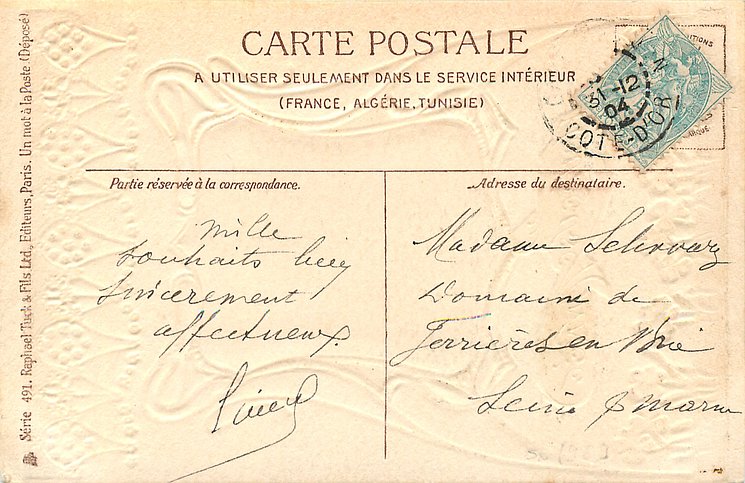 CARTE POSTALE
A UTILISER SEULEMENT DANS LE SERVICE INTÉRIEUR
(FRANCE, ALGÉRIE, TUNISIE)
31-12
04
COTE-D'OR
Partie réservée à la correspondance.
Mille
souhaits bien
sincerement
affectueux.
Adresse du destinataire.
Madame Schwarz
Domaine de
Ferrières en Brie
Seine & Marne
Série 491. Raphael Tuck & Fils Ltd., Editeurs, Paris. Un mot à la Poste (Déposé)